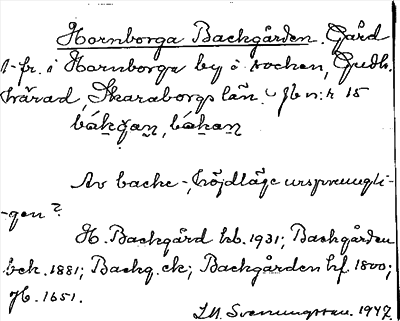 Hornborga Backgården. Gård
1 fr. i Hornborga by o. socken, Gudh.
härad, Skaraborgs län. Jb nr 15
bákgan, bákan
Av backe-, höjdläge ursprungli-
-gen?
H. Backgård kb. 1931; Backgården
bek. 1881; Backg. ek; Backgården hf 1800;
Jb. 1651.
Svenungsson. 1947.